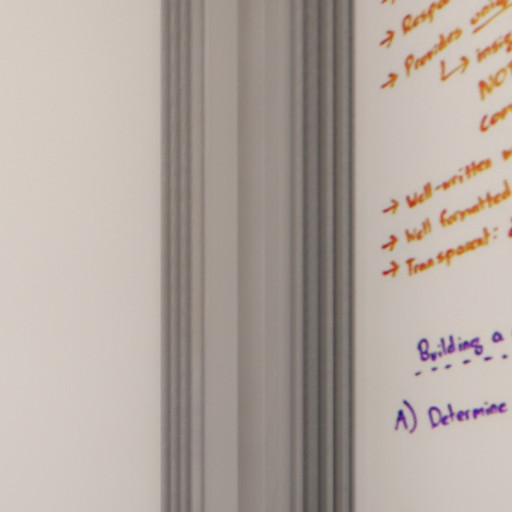 → Respo
→ Provides uniq
↳ insig
NOT
Con
→ Well-written
→ Well formatted
→ Transparent:
Building a
A) Determine